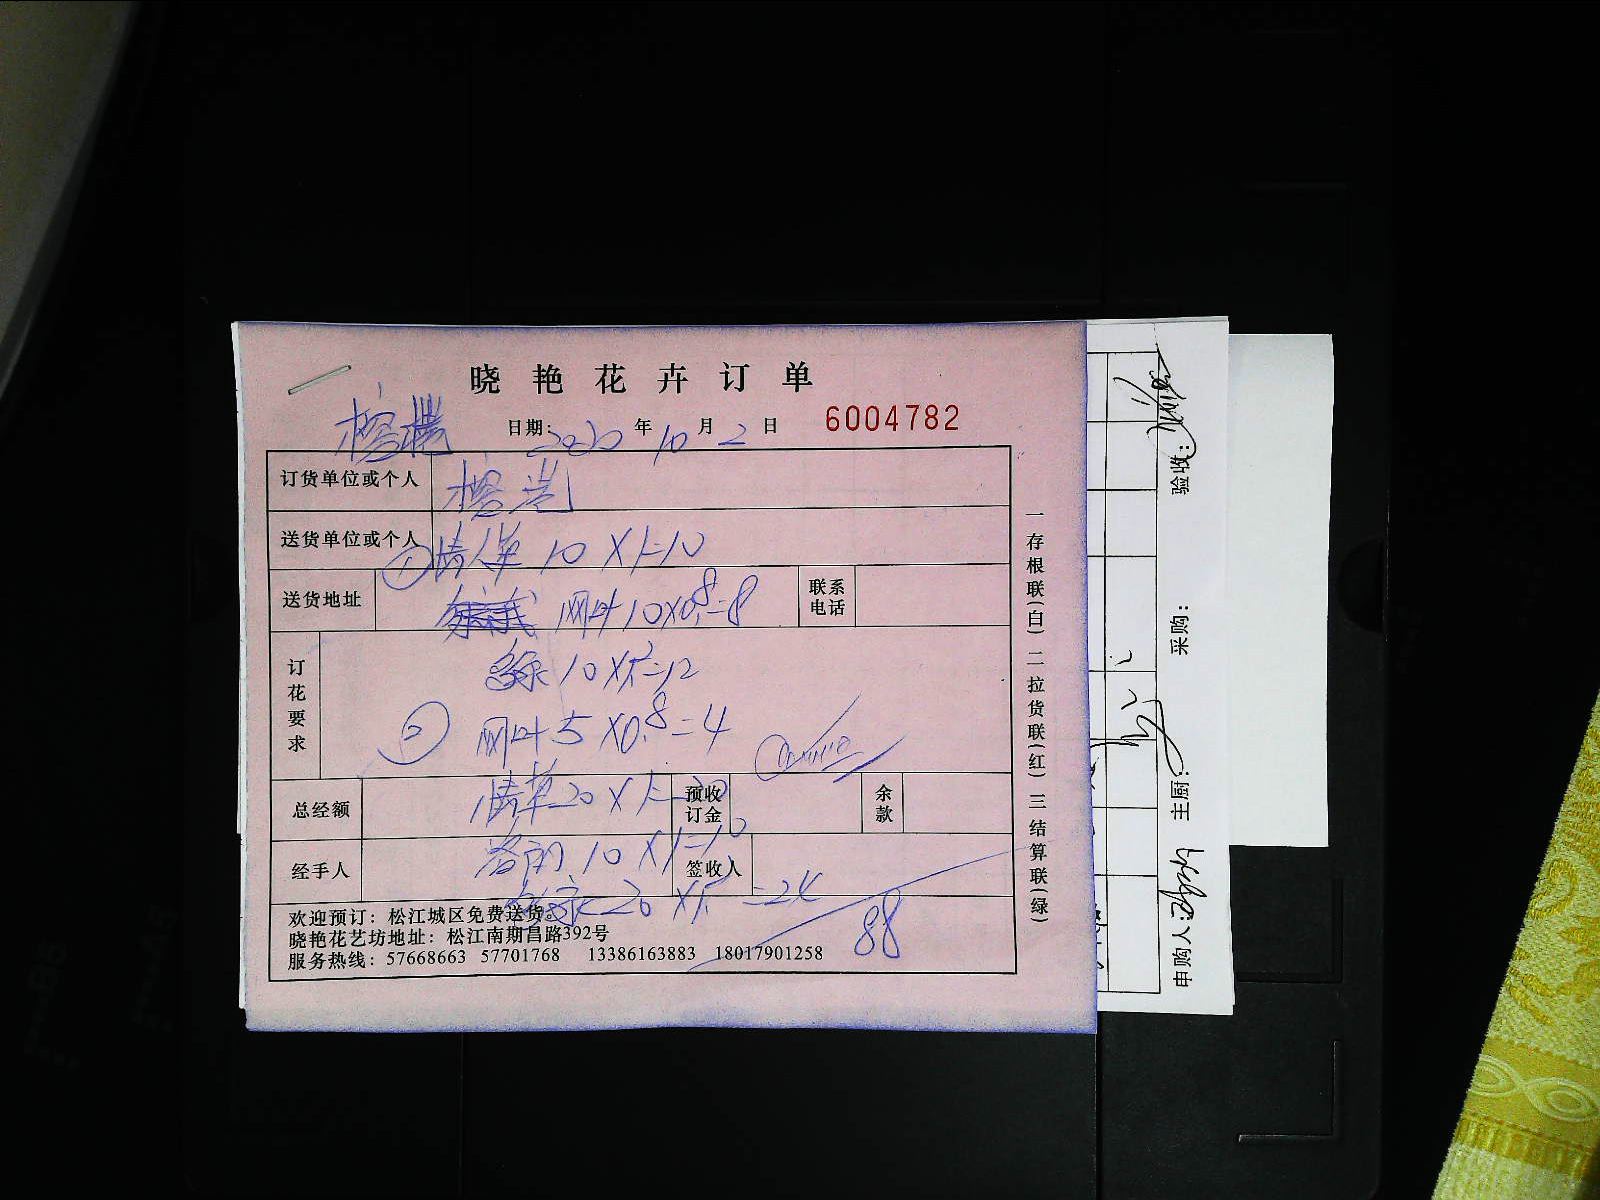 晓艳花卉订单
日期: 2020 年 10 月 2 日 6004782
订货单位或个人
送货单位或个人 ① 情人草 10 X 1=10
送货地址 网叶 10X0.8=8 联系电话
订花要求 10 X1.2=12
② 网叶 5 X0.8=4
总经额 情草 20 X 1=20 预收订金 余款
经手人 10 X1=10 签收人
20 X1.2=24
88
欢迎预订：松江城区免费送货。
晓艳花艺坊地址：松江南期昌路392号
服务热线：57668663 57701768 13386163883 18017901258
一存根联(白) 二拉货联(红) 三结算联(绿)
申购人: 主厨: 采购: 验收: